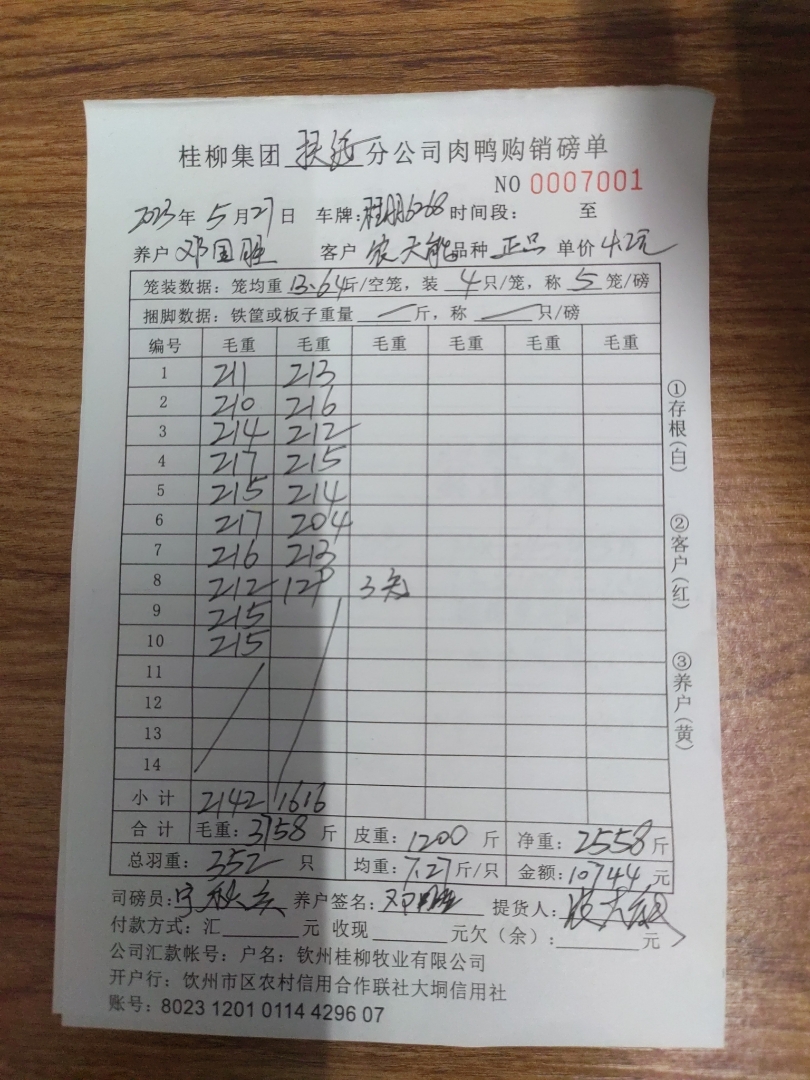 桂柳集团 扶绥 分公司肉鸭购销磅单
NO 0007001
2023年 5月27日 车牌: 时间段: 至
养户 邓国胜 客户 农天能 品种 正品 单价 4.2元
笼装数据: 笼均重 13.64斤/空笼, 装 4 只/笼, 称 5 笼/磅
捆脚数据: 铁筐或板子重量 斤, 称 只/磅
编号 毛重 毛重 毛重 毛重 毛重 毛重
1 211 213
2 210 216
3 214 212
4 217 215
5 215 214
6 217 204
7 216 213
8 212 129 3笼
9 215
10 215
11
12
13
14
小计 2142 1616
合计 毛重: 3758 斤 皮重: 1200 斤 净重: 2558斤
总羽重: 352 只 均重: 7.27斤/只 金额: 10744 元
司磅员: 养户签名: 邓国胜 提货人:
付款方式: 汇 元 收现 元欠(余): 元
公司汇款帐号: 户名: 钦州桂柳牧业有限公司
开户行: 钦州市区农村信用合作联社大垌信用社
账号: 8023 1201 0114 4296 07
①存根(白)
②客户(红)
③养户(黄)